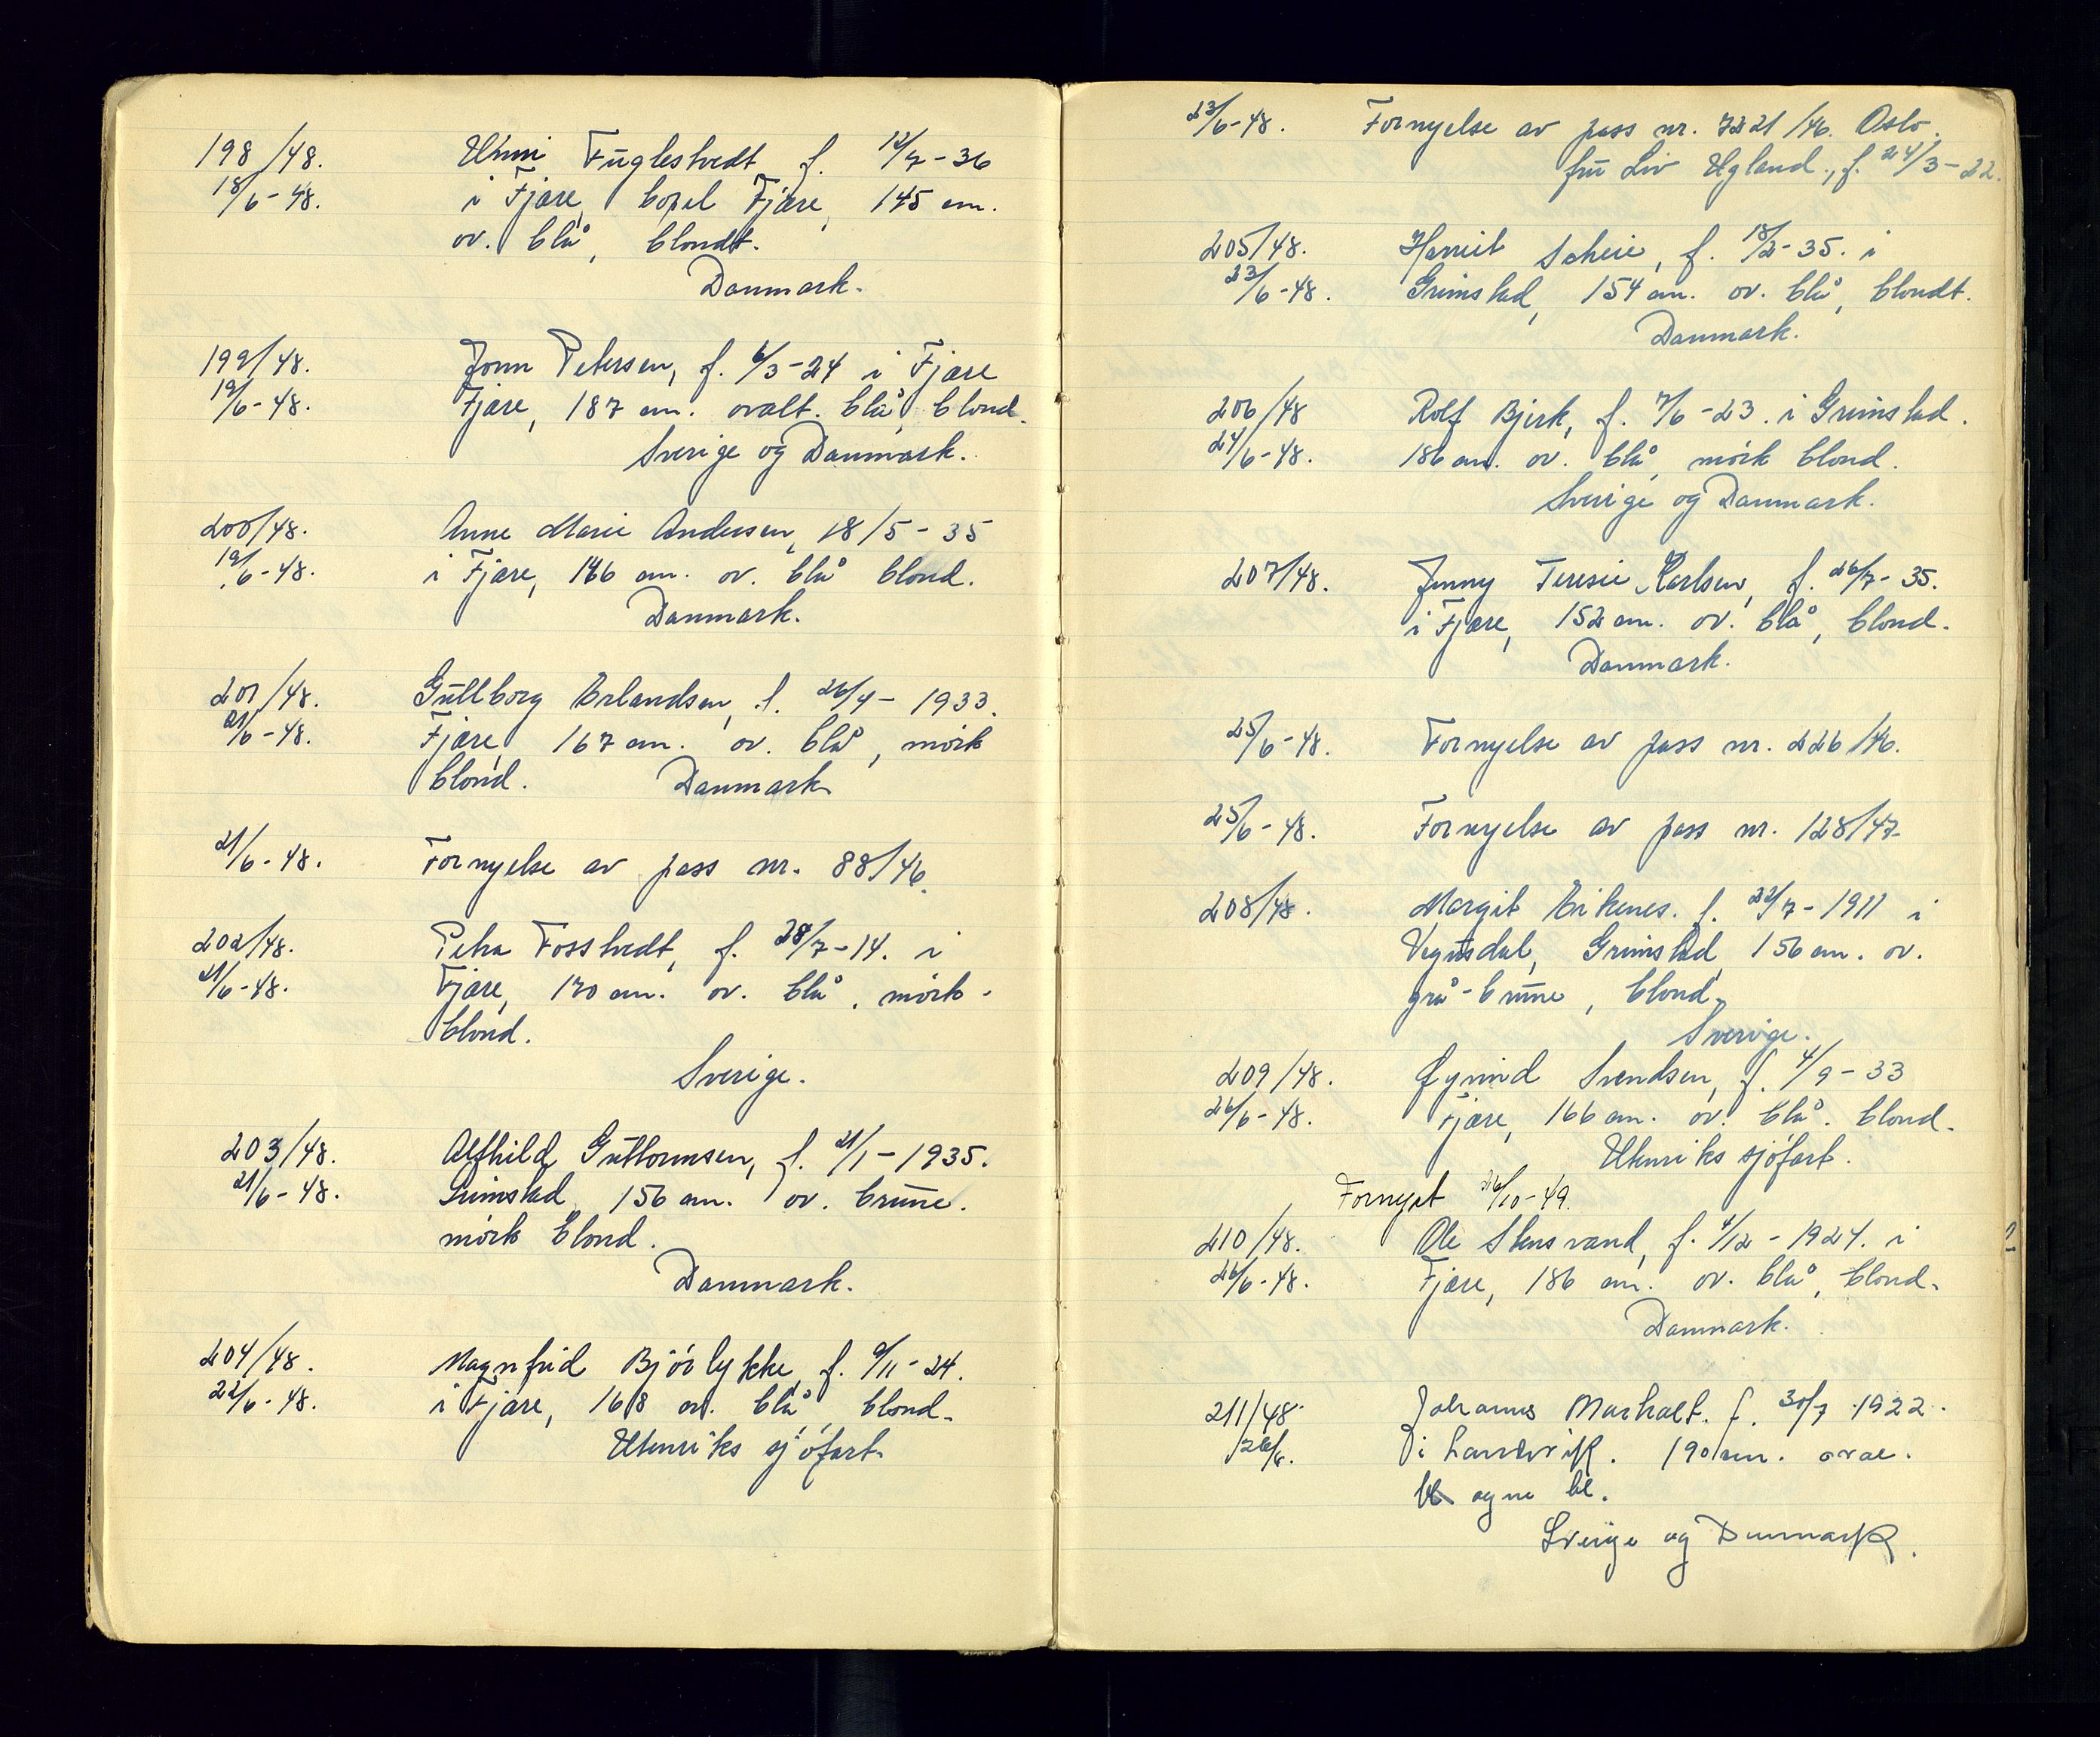 198/48. Unni Fuglestvedt f. 12/7-36
18/6-48. i Fjære, bopel Fjære, 145 cm.
ov. blå, blondt.
Danmark.
199/48. Jonn Petersen, f. 6/3-24 i Fjære
19/6-48. Fjære, 187 cm. ovalt. blå, blond.
Sverige og Danmark.
200/48. Anne Marie Andersen, 18/5-35
19/6-48. i Fjære, 166 cm. ov. blå blond.
Danmark.
201/48. Gullborg Erlandsen, f. 26/4-1933.
21/6-48. Fjære, 167 cm. ov. blå, mörk
blond. Danmark
21/6-48. Fornyelse av pass nr. 88/46.
202/48. Petra Fosstvedt, f. 28/7-14. i
21/6-48. Fjære, 170 cm. ov. blå, mörk-
blond.
Sverige.
203/48. Alfhild Guttormsen, f. 21/1-1935.
21/6-48. Grimstad, 156 cm. ov. brune.
mörk blond.
Danmark.
204/48. Magnfrid Björlykke, f. 9/11-24.
22/6-48. i Fjære, 168 ov. blå, blond.
Utenriks sjöfart.
23/6-48. Fornyelse av pass nr. 7221/46. Oslo.
fru Liv Ugland, f. 24/3-22.
205/48. Harriet Scheie, f. 18/2-35. i
23/6-48. Grimstad, 154 cm. ov. blå, blondt.
Danmark.
206/48 Rolf Bjerk, f. 7/6-23. i Grimstad.
24/6-48. 186 cm. ov. blå, mörk blond.
Sverige og Danmark.
207/48. Jenny Teresie Karlsen, f. 26/7-35.
i Fjære, 152 cm. ov. blå, blond.
Danmark.
25/6-48. Fornyelse av pass nr. 226/46.
25/6-48. Fornyelse av pass nr. 128/47
208/48. Margit Eikenes. f. 22/7-1911 i
Vegusdal, Grimstad, 156 cm. ov.
grå-brune, blond,
Sverige.
209/48. Öyvind Svendsen, f. 4/9-33
26/6-48. Fjære, 166 cm. ov. blå. blond.
Utenriks sjöfart.
Fornyet 26/10-49.
210/48. Ole Stensvand, f. 4/12-1924. i
26/6-48. Fjære, 186 cm. ov. blå, blond.
Danmark.
211/48. Johannes Marholt. f. 30/7 1922.
26/6. i Landvik. 190 cm. oval.
øgne bl.
Sverige og Danmark.